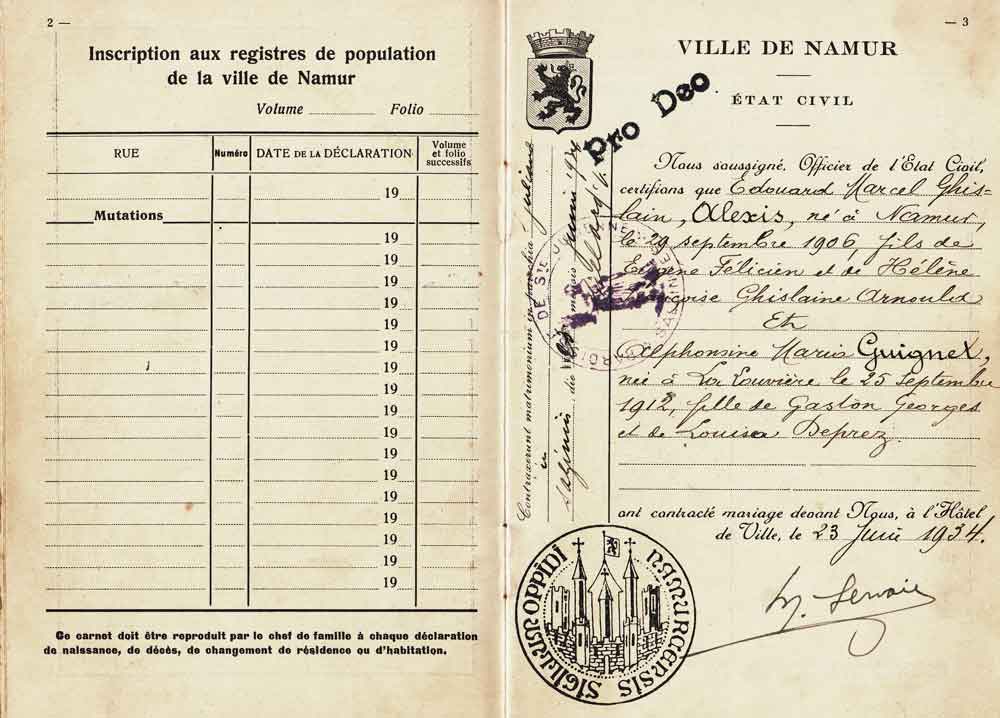 2 —
Inscription aux registres de population
de la ville de Namur
Volume Folio
RUE Numéro DATE DE LA DÉCLARATION Volume et folio successifs
19
Mutations
19
19
19
19
19
19
19
19
19
19
19
19
19
19
19
19
19
Ce carnet doit être reproduit par le chef de famille à chaque déclaration
de naissance, de décès, de changement de résidence ou d'habitation.
— 3
VILLE DE NAMUR
ÉTAT CIVIL
Pro Deo
Nous soussigné, Officier de l'Etat Civil,
certifions que Edouard Marcel Ghis-
lain, Alexis, né à Namur,
le 29 septembre 1906, fils de
Eugène Félicien et de Hélène
Françoise Ghislaine Arnould
Et
Alphonsine Maria Guignet,
née à La Louvière le 25 Septembre
1912, fille de Gaston Georges
et de Louisa Deprez.
ont contracté mariage devant Nous, à l'Hôtel
de Ville, le 23 Juin 1934.
Contraxerunt matrimonium in parochia Juliana
in Salzinis die mensis Junii 1934
DE STE JULIENNE SALZINNES
SIGILLUM OPPIDI NAMURCENSIS